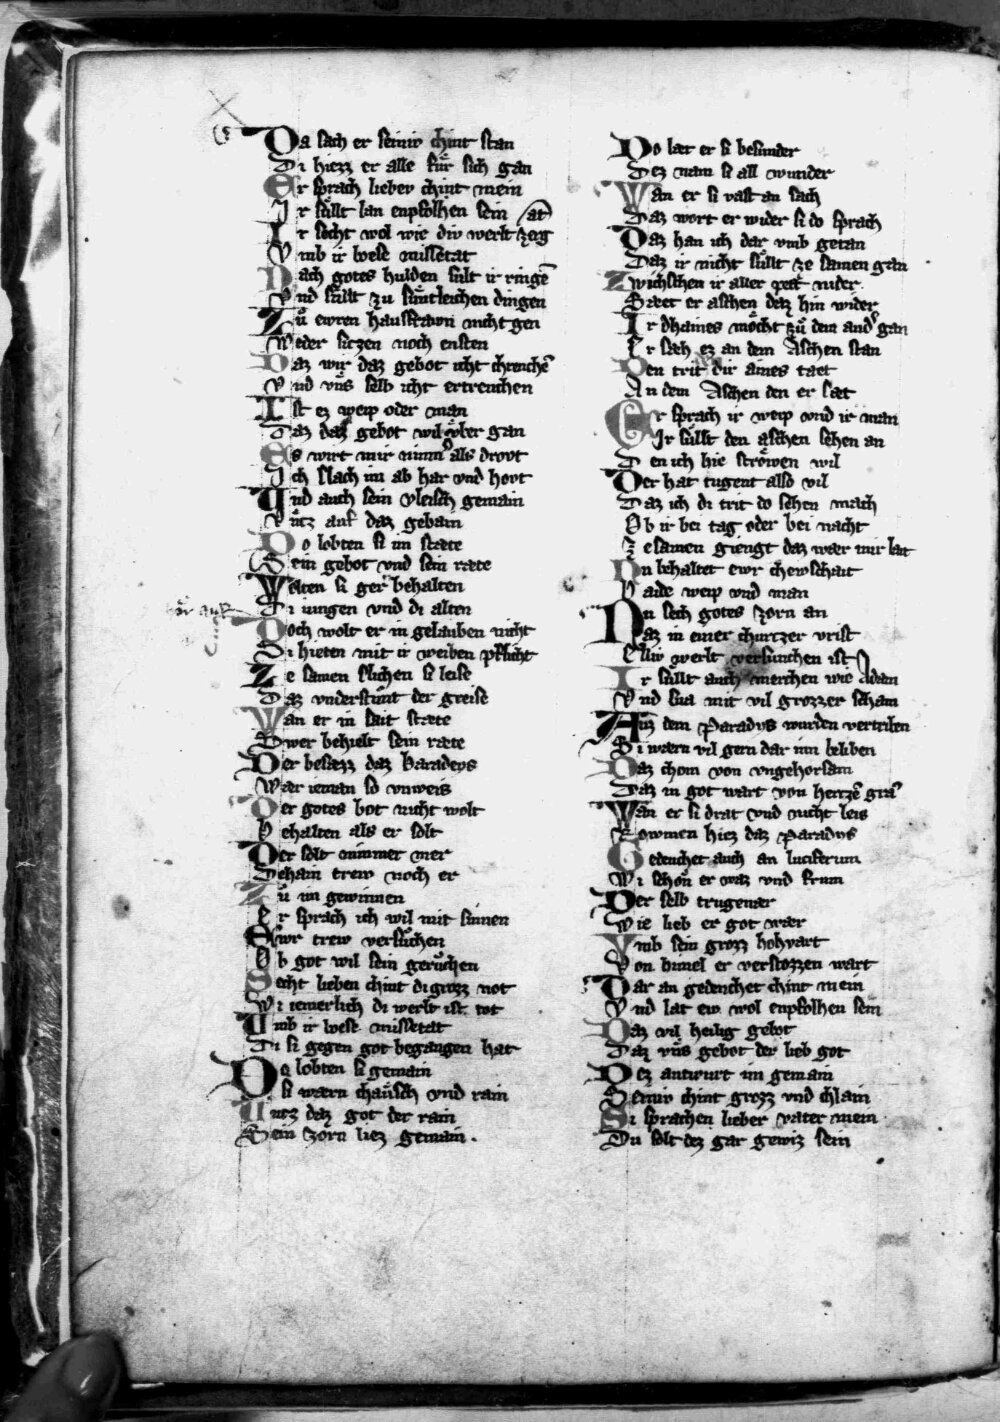 Da sach er seinev chint stan
Di hiezz er alle fuͤr sich gan
Er sprach liebev chint mein
Ir suͤllt lan enpfolhen sein
Ir secht wol wie div werlt zerg at
Vmb ir boͤse missetat
Nach gotes hulden sult ir ringē
Vnd suͤllt zu suͤntleichen dingen
Zuͦ ewren hausfrawn nicht gen
Weder sitzen noch ensten
Daz wir daz gebot icht chrenchē
Vnd vns selb icht ertrenchen
Ist ez weip oder man
Daz daz gebot wil vber gan
Es wirt mir nimm̄ als drovt
Ich slach im ab har vnd hovt
Vnd auch sein vleisch gemain
Vntz auf daz gebain
Do lobten si im stæte
Sein gebot vnd sein ræte
Wolten si gern behalten
Di iungen vnd di alten
Doch wolt er in gelauben nicht
Si hieten mit ir weiben pflicht
Ze samen slichen si leise
Daz vnderstuͤnt der greise
Wan er in sait stæte
Swer behielt sein ræte
Der besæzz daz Paradeys
Wær ieman so vnweis
Der gotes bot nicht wolt
Behalten als er solt
Der solt nimmer mer
Dehain trew noch er
Zuͦ im gewinnen
Er sprach ich wil mit sinnen
Ewr trew versuͤchen
Ob got wil sein geruͤchen
Secht lieben chint di grozz not
Wi iemerlich di werlt ist tot
Vmb ir boͤse missetat
Di si gegen got begangen hat
Do lobten si gemain
Si warn chaͤusch vnd rain
Vntz daz got der rain
Sein zorn liez gemain.
Do lær er si besunder
Dez nam si all wunder
Wan er si vast an sach
Daz wort er wider si do sprach
Daz han ich dar vmb getan
Daz ir nicht suͤllt ze samen gan
Zwischen ir aller pett nider
Sæet er aschen daz hin wider
Ir dhaines moͤcht zuͦ dem and̄ gan
Er sæh ez an dem Aschen stan
Den trit dir aines tæt
An dem Aschen den er sæt
Er sprach ir weip vnd ir man
Ir suͤllt den aschen sehen an
Den ich hie stroͤwen wil
Der hat tugent also vil
Daz ich di trit do sehen mach
Ob ir bei tag oder bei nacht
Ze samen giengt daz wær mir lait
Nu behaltet ewr chewschait
Paide weip vnd man
Nu sech gotes zorn an
Daz in einer churtzer vrist
Ellev werlt versunchen ist
Ir suͤllt auch merchen wie Adam
Vnd Eua mit vil grozzer scham
Auz dem Paradys wurden vertriben
Si wærn vil gern dar inn beliben
Daz chom von vngehorsam
Daz in got wart von hertzē gra̅
Wan er si drat vnd nicht leis
Rowmen hiez daz Paradys
Gedenchet auch an luciferum
Wi schoͤn er waz vnd frum
Der selb trugenær
Wie lieb er got wær
Vmb sein grozz hohvart
Von himel er verstozzen wart
Dar an gedenchet chint mein
Vnd lat ew wol enpfolhen sein
Daz vil heilig gebot
Daz vns gebot der lieb got
Dez antwurt im gemain
Seinev chint grozz vnd chlain
Si sprachen lieber vater mein
Du solt dez gar gewiz sein